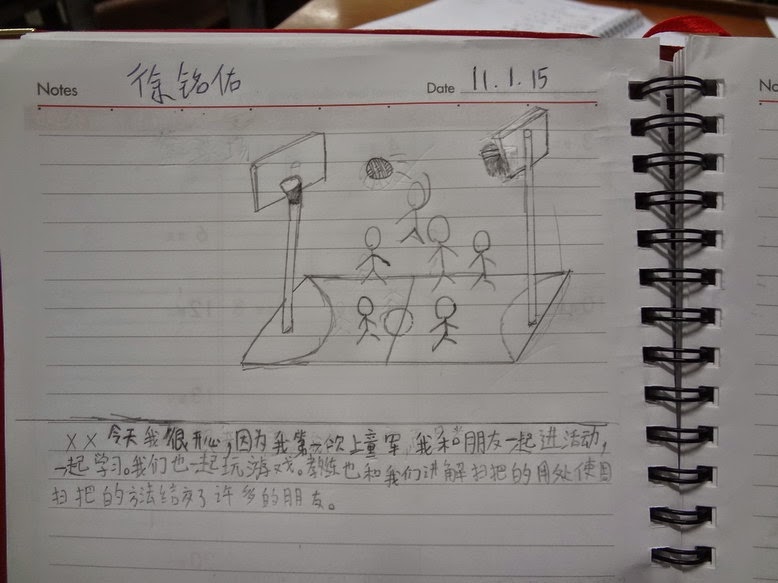 Notes 徐铭佑 Date 11.1.15
×× 今天我很开心,因为我第一次上童军,我和朋友一起进活动,
一起学习。我们也一起玩游戏。教练也和我们讲解扫把的用处使用
扫把的方法结交了许多的朋友。